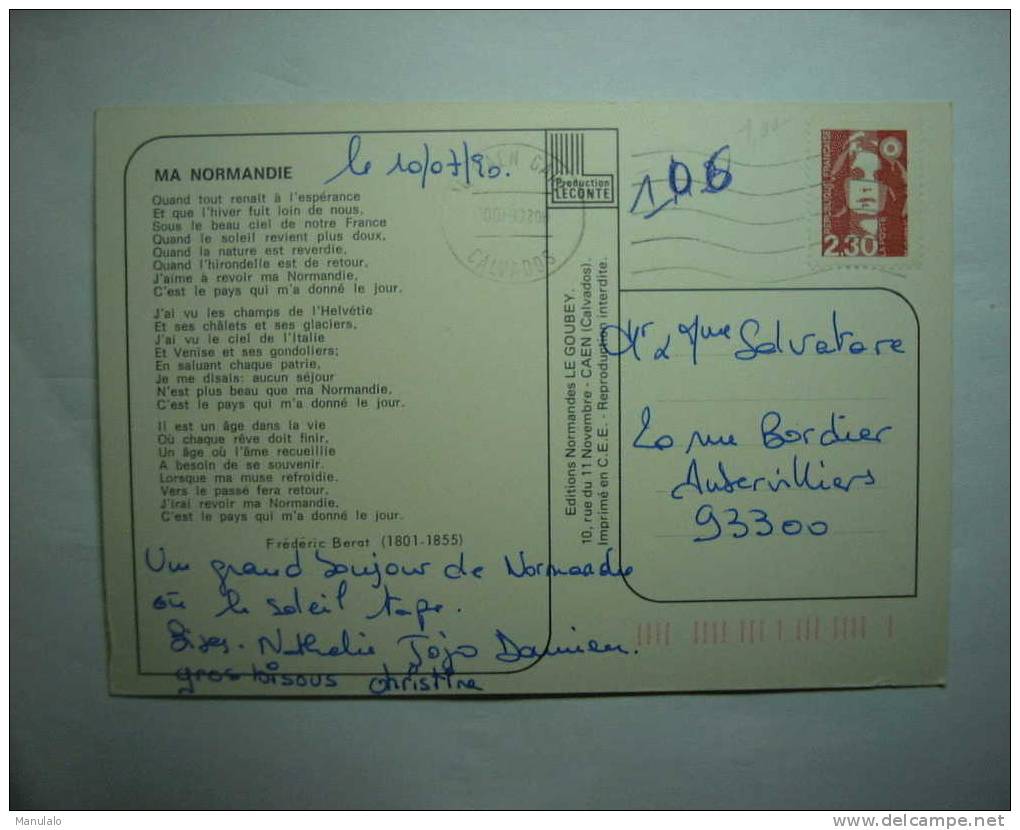 MA NORMANDIE
le 10/07/90.
Quand tout renaît à l'espérance
Et que l'hiver fuit loin de nous,
Sous le beau ciel de notre France
Quand le soleil revient plus doux,
Quand la nature est reverdie,
Quand l'hirondelle est de retour,
J'aime à revoir ma Normandie,
C'est le pays qui m'a donné le jour.
J'ai vu les champs de l'Helvétie
Et ses châlets et ses glaciers,
J'ai vu le ciel de l'Italie
Et Venise et ses gondoliers;
En saluant chaque patrie,
Je me disais: aucun séjour
N'est plus beau que ma Normandie,
C'est le pays qui m'a donné le jour.
Il est un âge dans la vie
Où chaque rêve doit finir,
Un âge où l'âme recueillie
A besoin de se souvenir.
Lorsque ma muse refroidie,
Vers le passé fera retour,
J'irai revoir ma Normandie,
C'est le pays qui m'a donné le jour.
Frédéric Berat (1801-1855)
Un grand bonjour de Normandie
où le soleil tape.
Bises. Nathalie Jojo Damien.
gros bisous christine
Production
LECONTE
CALVADOS
Editions Normandes LE GOUBEY.
10, rue du 11 Novembre - CAEN (Calvados).
Imprimé en C.E.E. - Reproduction interdite.
REPUBLIQUE FRANÇAISE
LA POSTE
2,30
Mr & Mme Salvatore
20 rue Bordier
Aubervilliers
93300
Manulalo
delcampe.net